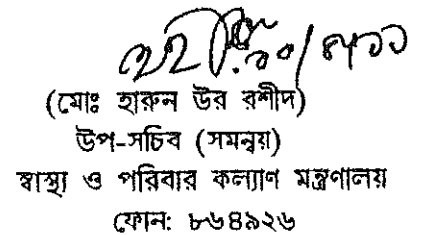 (মোঃ হারুন উর রশীদ)
উপ-সচিব (সমন্বয়)
স্বাস্থ্য ও পরিবার কল্যাণ মন্ত্রণালয়
ফোন: ৮৬৪৯২৬